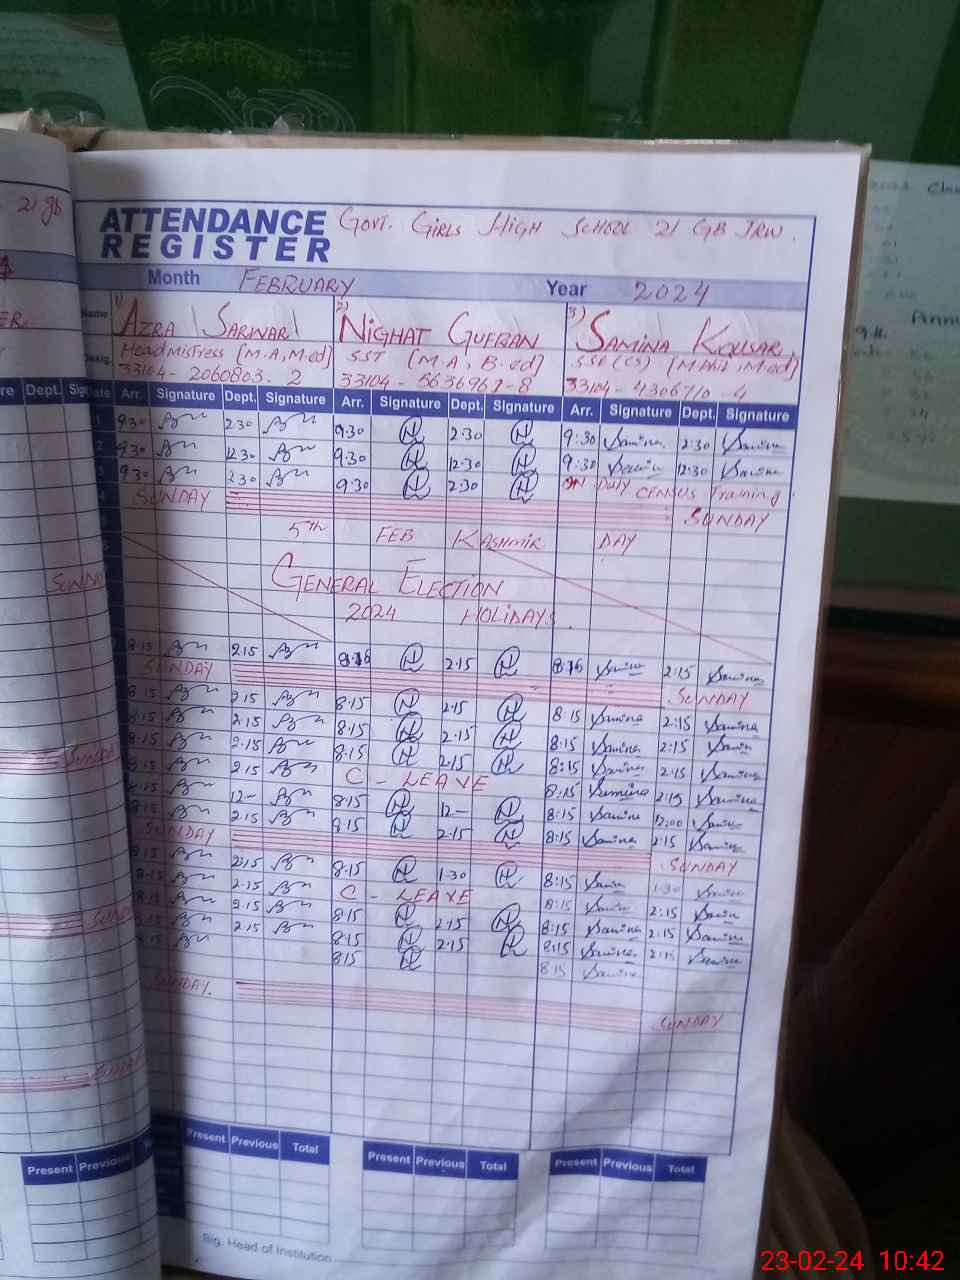 21 gb
ATTENDANCE REGISTER Govt. Girls High School 21 GB JRW.
Month FEBRUARY Year 2024
Name 1) AZRA SARWAR 2) NIGHAT GUFRAN 3) SAMINA KOUSAR
Desig. Headmistress [M.A, M.ed] SST [M.A, B.ed] SSE (CS) [M Phil, M.ed]
33104-2060803-2 33104-5636967-8 33104-4306710-4
Dept. Date Arr. Signature Dept. Signature Arr. Signature Dept. Signature Arr. Signature Dept. Signature
1 9:30 2:30 9:30 N 2:30 N 9:30 Samina 2:30 Samina
2 9:30 12:30 9:30 N 12:30 N 9:30 Samina 12:30 Samina
3 9:30 2:30 9:30 N 2:30 N On Duty CENSUS Training
4 SUNDAY SUNDAY
5th FEB KASHMIR DAY
GENERAL ELECTION
2024 HOLIDAYS.
8:15 2:15 N 2:15 N Samina 2:15 Samina
SUNDAY SUNDAY
8:15 2:15 8:15 N 2:15 N 8:15 Samina 2:15 Samina
8:15 2:15 8:15 N 2:15 N 8:15 Samina 2:15 Samina
8:15 2:15 8:15 N 2:15 N 8:15 Samina 2:15 Samina
8:15 2:15 C - LEAVE 8:15 Samina 2:15 Samina
8:15 12- 8:15 N 12- N 8:15 Samina 12:00 Samina
8:15 2:15 8:15 N 2:15 N 8:15 Samina 2:15 Samina
SUNDAY SUNDAY
8:15 2:15 8:15 N 1-30 N 8:15 Samina 1-30 Samina
8:15 2:15 C - LEAVE 8:15 Samina 2:15 Samina
8:15 2:15 8:15 N 2:15 N 8:15 Samina 2:15 Samina
8:15 2:15 8:15 N 2:15 N 8:15 Samina 2:15 Samina
8:15 8:15 N 8:15 Samina
SUNDAY. SUNDAY
Present Previous Total Present Previous Total Present Previous Total
Present Previous
Sig. Head of Institution
23-02-24 10:42